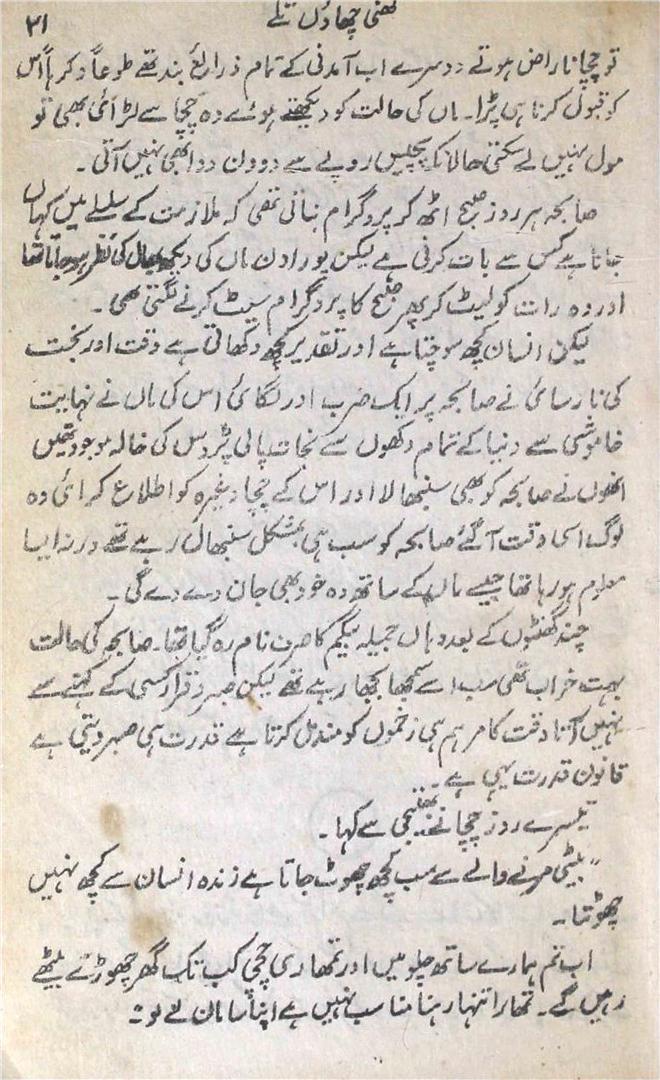 گھنی چھاؤں تلے
۳۱
تو چچا ناراض ہوتے دوسرے اب آمدنی کے تمام ذرائع بند تھے طوعاً و کرہاً اس
کو قبول کرنا ہی پڑا۔ ماں کی حالت کو دیکھتے ہوئے وہ چچا سے لڑائی بھی تو
مول نہیں لے سکتی حالانکہ پچیس روپے سے دو دن دوا بھی نہیں آتی۔
صابحہ ہر روز صبح اٹھ کر پروگرام بناتی تھی کہ ملازمت کے سلسلے میں کہاں
جانا ہے کس سے بات کرنی ہے لیکن پورا دن ماں کی دیکھ بھال کی نظر ہو جاتا تھا
اور وہ رات کو لیٹ کر پھر صبح کا پروگرام سیٹ کرنے لگتی تھی۔
لیکن انسان کچھ سوچتا ہے اور تقدیر کچھ دکھاتی ہے وقت اور بخت
کی نارسائی نے صابحہ پر ایک ضرب اور لگائی اس کی ماں نے نہایت
خاموشی سے دنیا کے تمام دکھوں سے نجات پالی پڑوس کی خالہ موجود تھیں
انھوں نے صابحہ کو بھی سنبھالا اور اس کے چچا وغیرہ کو اطلاع کرائی وہ
لوگ اسی وقت آ گئے صابحہ کو سب ہی بمشکل سنبھال رہے تھے ورنہ ایسا
معلوم ہو رہا تھا جیسے ماں کے ساتھ وہ خود بھی جان دے دے گی۔
چند گھنٹوں کے بعد وہاں جمیلہ بیگم کا صرف نام رہ گیا تھا۔ صابحہ کی حالت
بہت خراب تھی سب اسے سمجھا بجھا رہے تھے لیکن صبر و قرار کسی کے کہنے سے
نہیں آتا وقت کا مرہم ہی زخموں کو مندمل کرتا ہے قدرت ہی صبر دیتی ہے
قانون قدرت یہی ہے۔
تیسرے روز چچا نے بھتیجی سے کہا۔
"بیٹی مرنے والے سے سب کچھ چھوٹ جاتا ہے زندہ انسان سے کچھ نہیں
چھوٹتا۔
اب تم ہمارے ساتھ چلو میں اور تمھاری چچی کب تک گھر چھوڑے بیٹھے
رہیں گے۔ تمھارا تنہا رہنا مناسب نہیں ہے اپنا سامان لے لو"۔